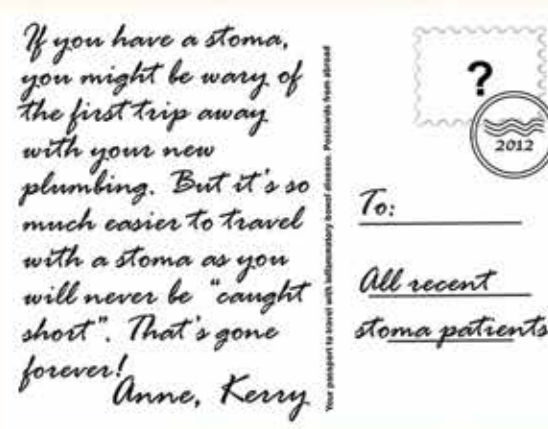 If you have a stoma,
you might be wary of
the first trip away
with your new
plumbing. But it's so
much easier to travel
with a stoma as you
will never be "caught
short". That's gone
forever!
Anne, Kerry
Your passport to travel with inflammatory bowel disease. Postcards from abroad
?
2012
To:
All recent
stoma patients